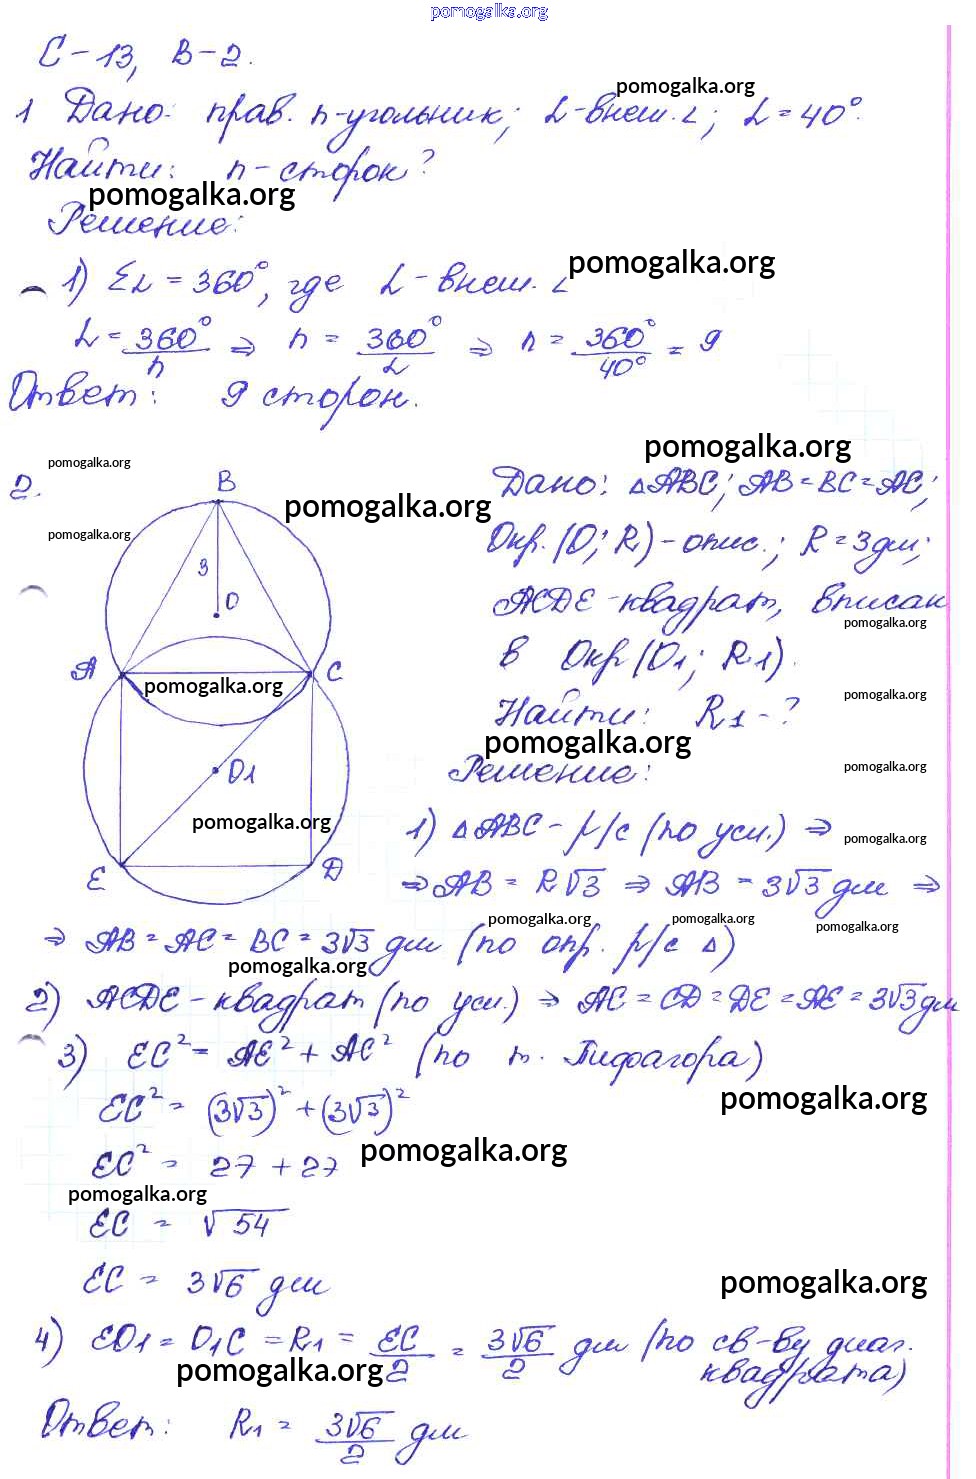 pomogalka.org
С-13, В-2.
pomogalka.org
1 Дано: прав. n-угольник; α-внеш. ∠; α = 40°.
Найти: n - сторон?
pomogalka.org
Решение:
1) Σα = 360°, где α - внеш. ∠
pomogalka.org
α = 360°/n ⇒ n = 360°/α ⇒ n = 360°/40° = 9
Ответ: 9 сторон.
pomogalka.org
pomogalka.org
2.
B
Дано: △ABC; AB = BC = AC;
pomogalka.org
pomogalka.org
Окр. (O; R) - опис.; R = 3 дм;
3
O
ACDE - квадрат, вписан
pomogalka.org
в Окр (O1; R1).
A
C
pomogalka.org
pomogalka.org
Найти: R1 - ?
pomogalka.org
Решение:
pomogalka.org
O1
pomogalka.org
1) △ABC - р/с (по усл.) ⇒
pomogalka.org
E
D
⇒ AB = R√3 ⇒ AB = 3√3 дм ⇒
pomogalka.org
pomogalka.org
pomogalka.org
⇒ AB = AC = BC = 3√3 дм (по опр. р/с △)
pomogalka.org
2) ACDE - квадрат (по усл.) ⇒ AC = CD = DE = AE = 3√3 дм
3) EC² = AE² + AC² (по т. Пифагора)
pomogalka.org
EC² = (3√3)² + (3√3)²
pomogalka.org
EC² = 27 + 27
pomogalka.org
EC = √54
EC = 3√6 дм
pomogalka.org
4) EO1 = O1C = R1 = EC/2 = 3√6/2 дм (по св-ву диаг.
квадрата)
pomogalka.org
Ответ: R1 = 3√6/2 дм